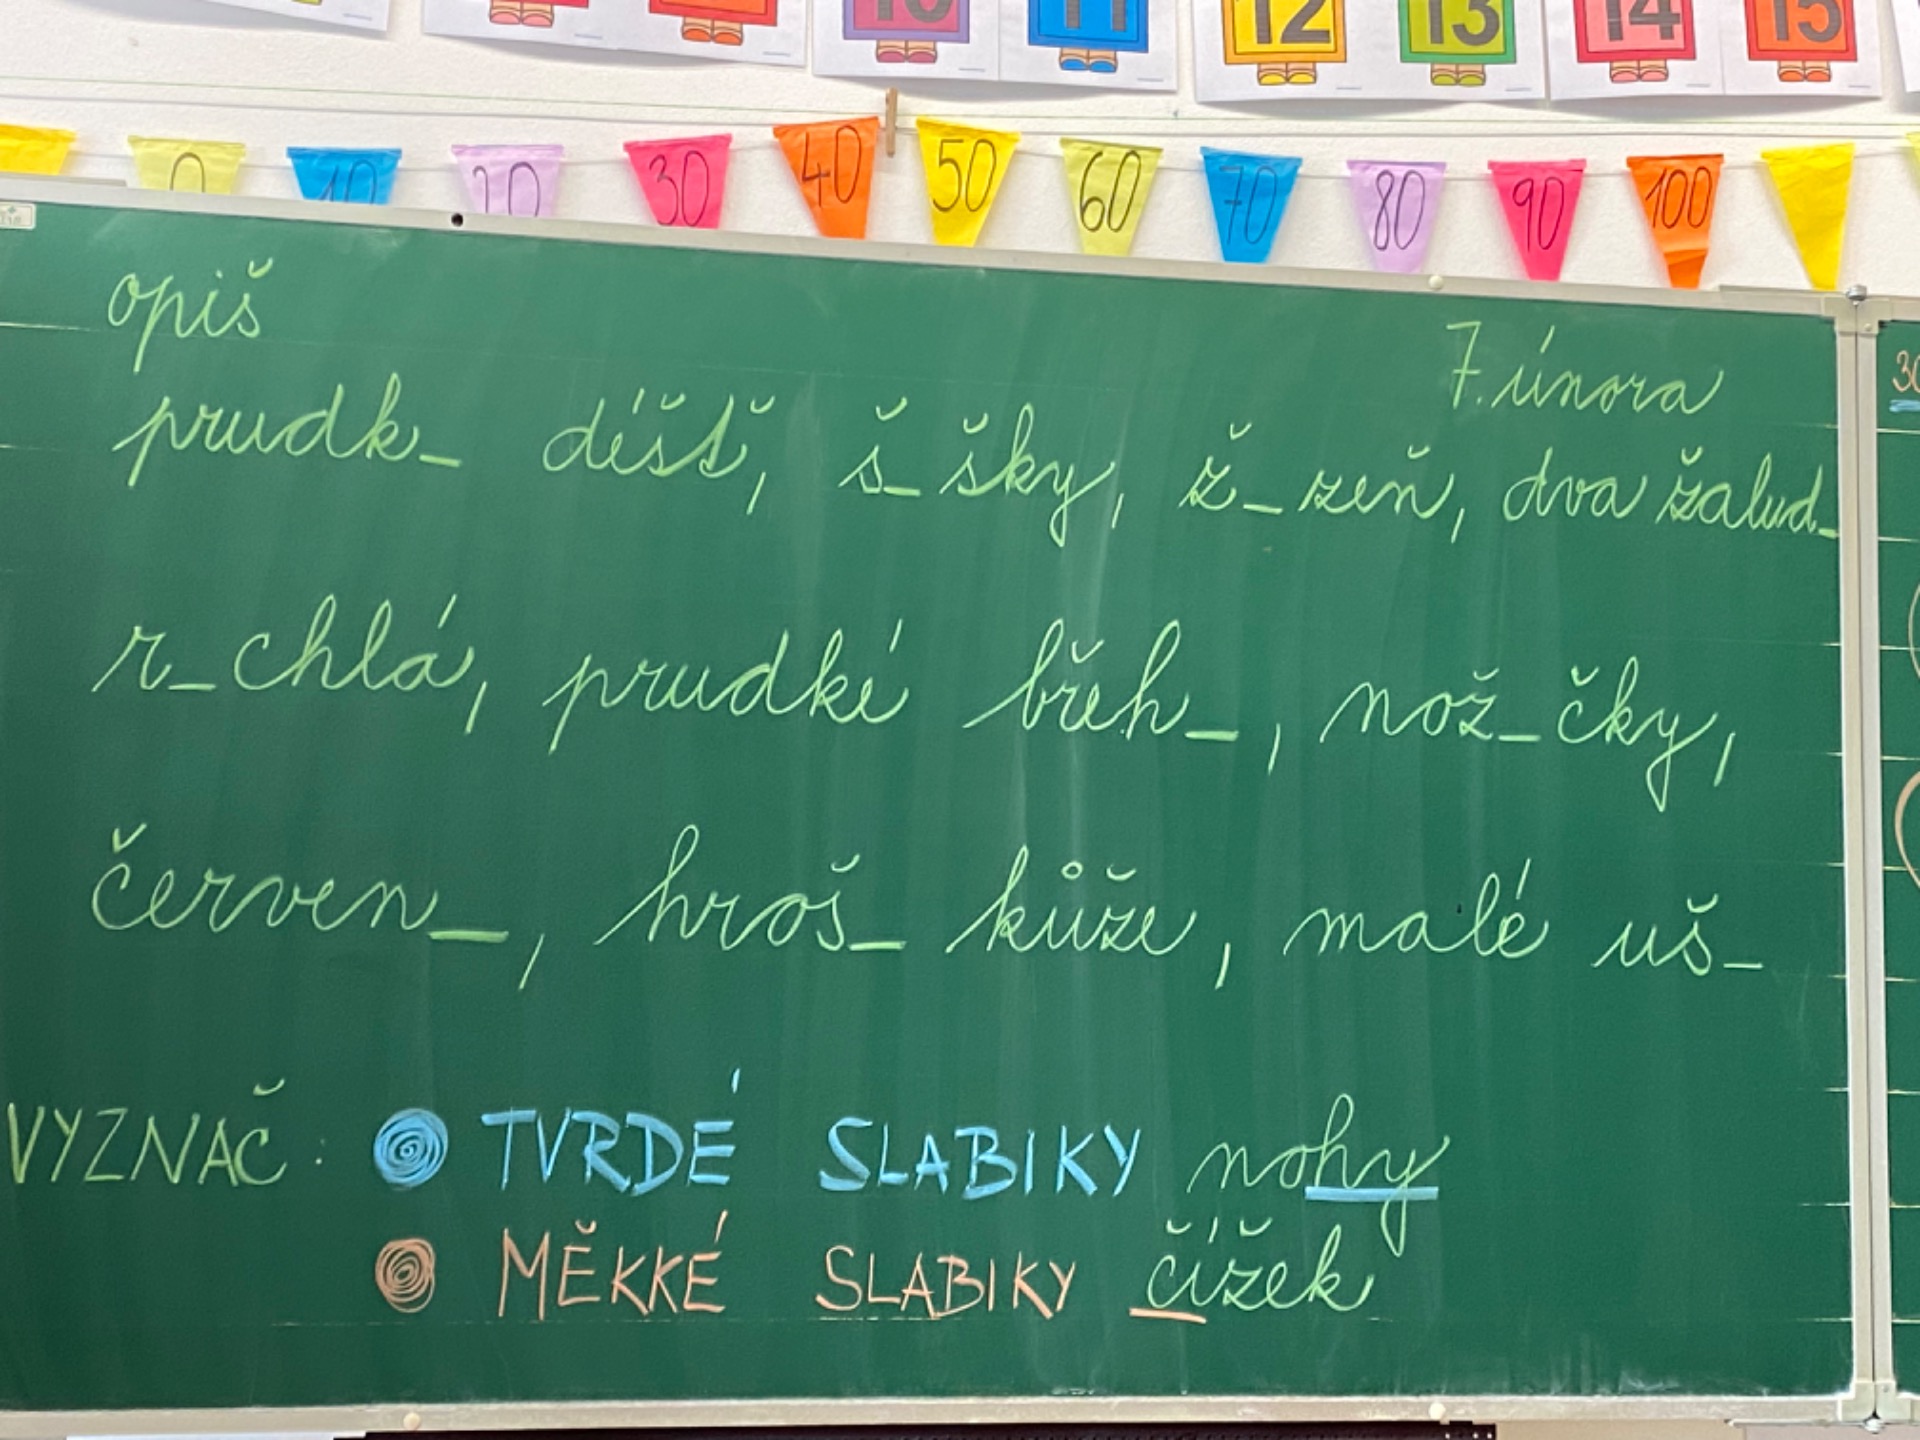 10 11 12 13 14 15
0 10 20 30 40 50 60 70 80 90 100
opiš
7. února
prudk_ déšť, š_šky, ž_zeň, dva žalud_
r_chlá, prudké břeh_, nož_čky,
červen_, hroš_ kůže, malé uš_
VYZNAČ: TVRDÉ SLABIKY nohy
MĚKKÉ SLABIKY čížek